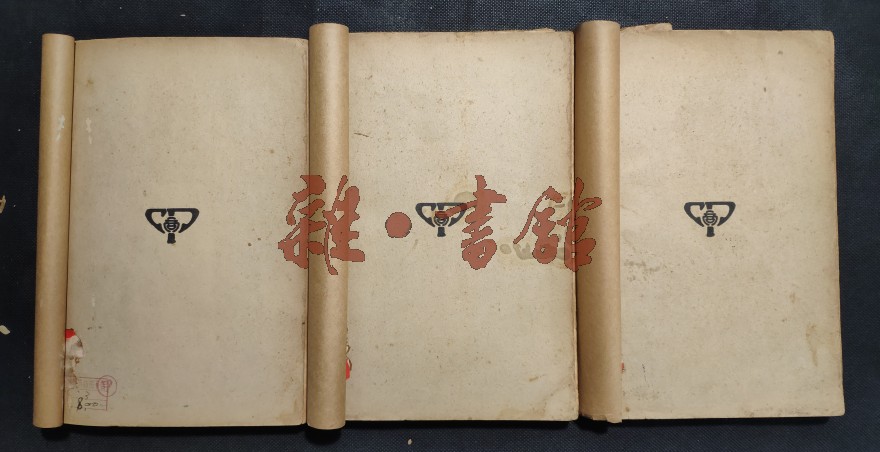 雜·書館
8.00